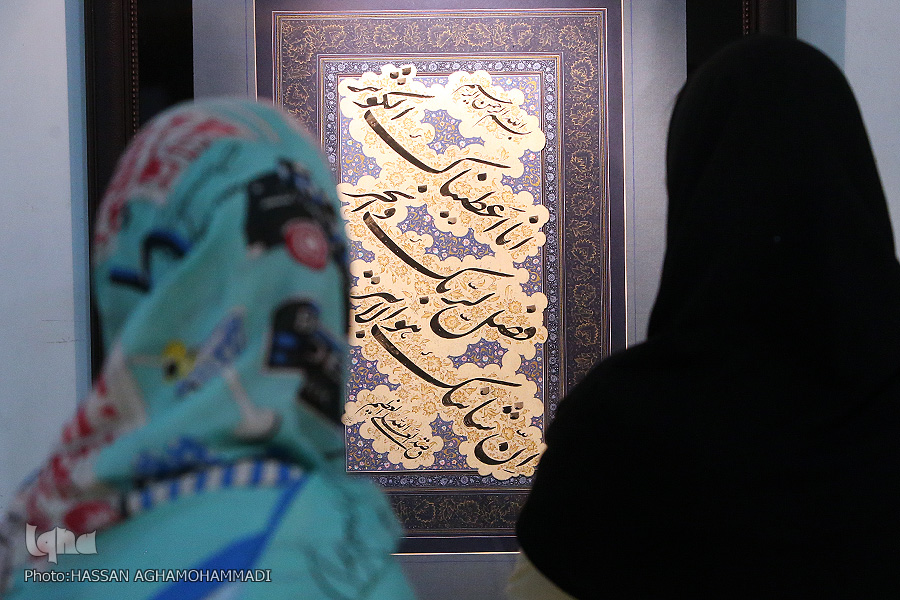 بسم الله الرحمن الرحیم
انا اعطیناک الکوثر
فصل لربک وانحر
ان شانئک هو الابتر
صدق الله العلی العظیم
iqna
Photo:HASSAN AGHAMOHAMMADI